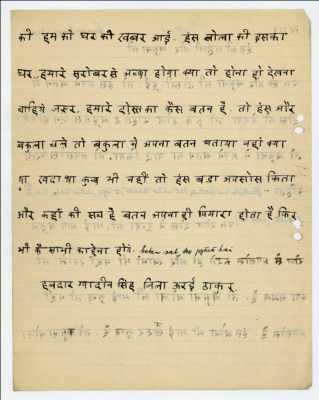 की हम को घर की खबर आई. हंस बोला की इसका
घर हमारे सरोबर से अच्छा होगा क्या तो होगा हो देखना
चाहिये जरूर. हमारे दोस्त का कैस बतन है. तो हंस और
बकुला चले तो बकुला ने अपना बतन बताया वहां क्या
था खदा था कुछ भी नहीं तो हंस बडा अपसोस किता
और कहाँ की सब है बतन अपना ही पियारा होता है किर
भी कैसाभी काहेना होवे. beten sab ko pyara hai
हवलदार ग्यादीन सिंह जिला उरई ठाकुर.